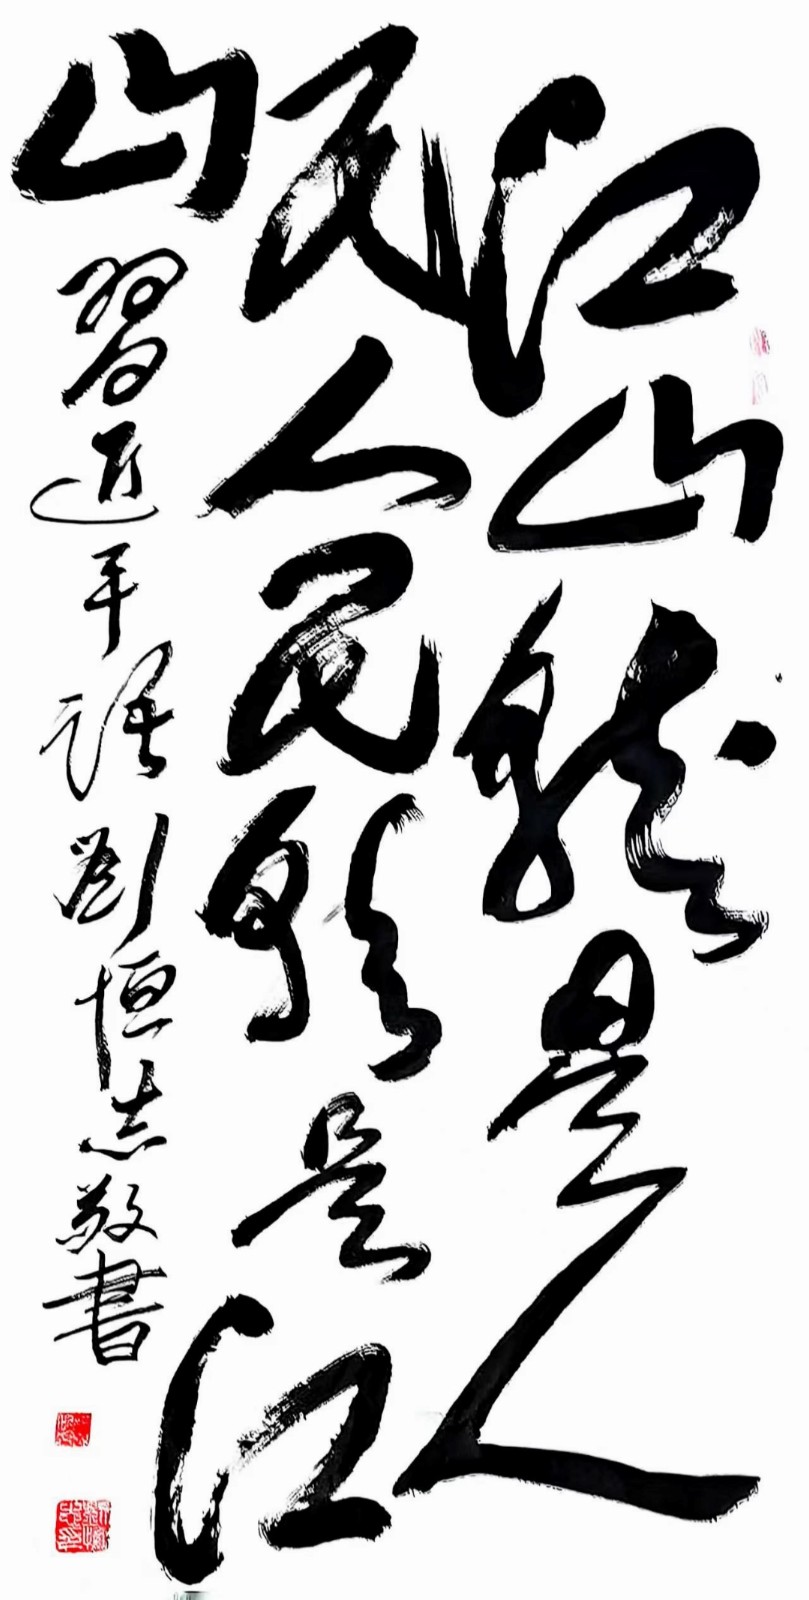 江山就是人
民人民就是江
山 習近平語 劉恒志敬書